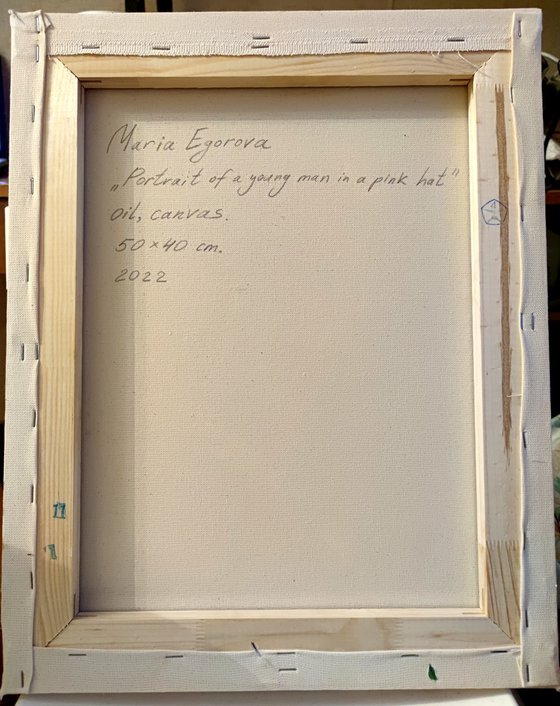 Maria Egorova
„Portrait of a young man in a pink hat”
Oil, canvas.
50×40 cm.
2022
11
1